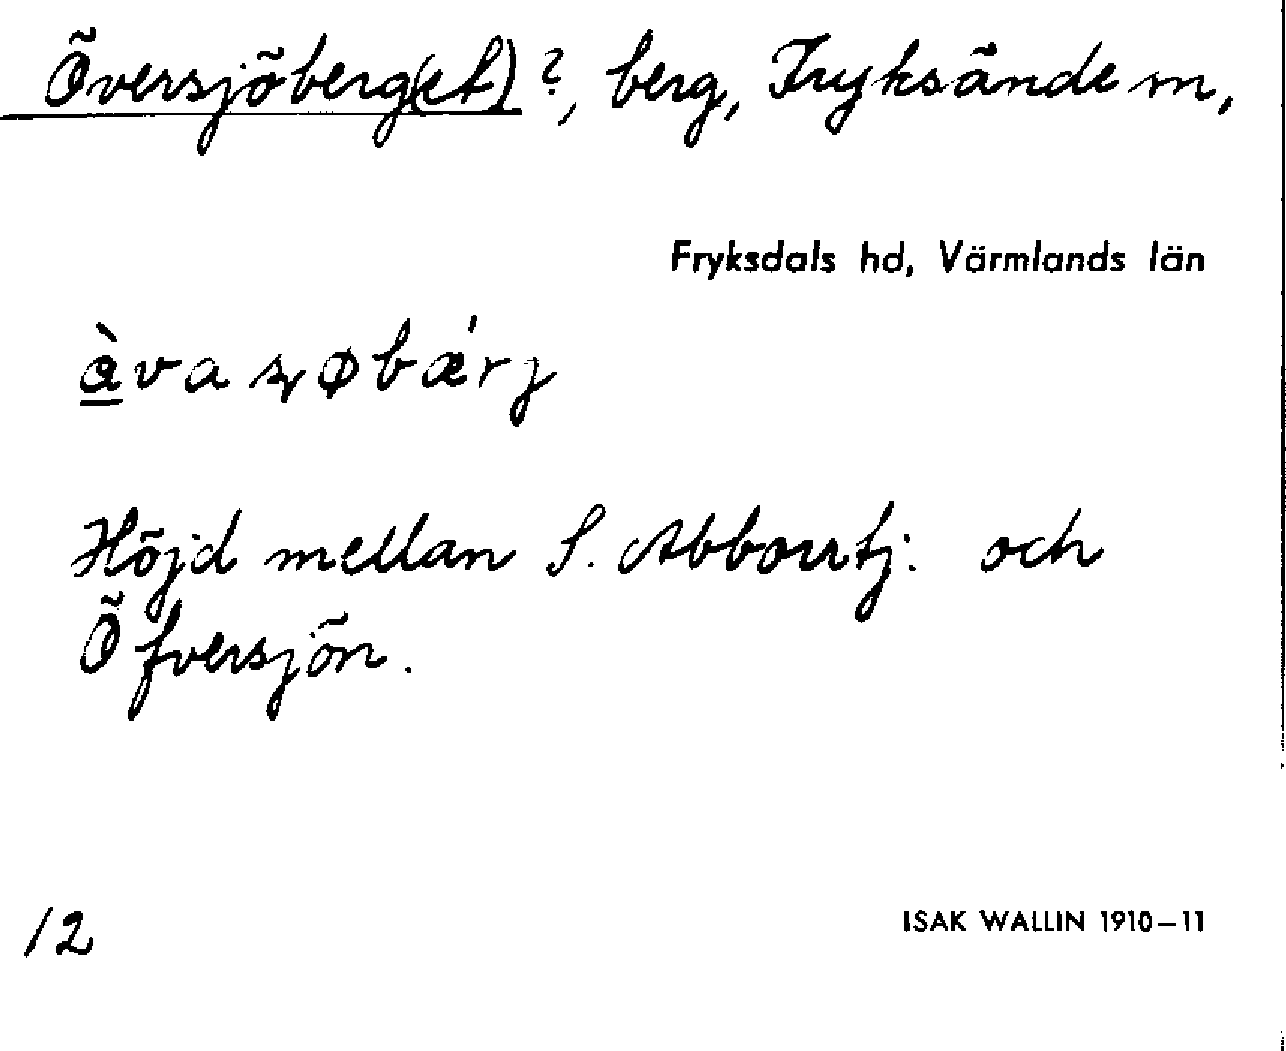 Översjöberg(et)?, berg, Fryksände sn,
Fryksdals hd, Värmlands län
Höjd mellan S. Abborrtj: och
Öfversjön.
12
ISAK WALLIN 1910–11